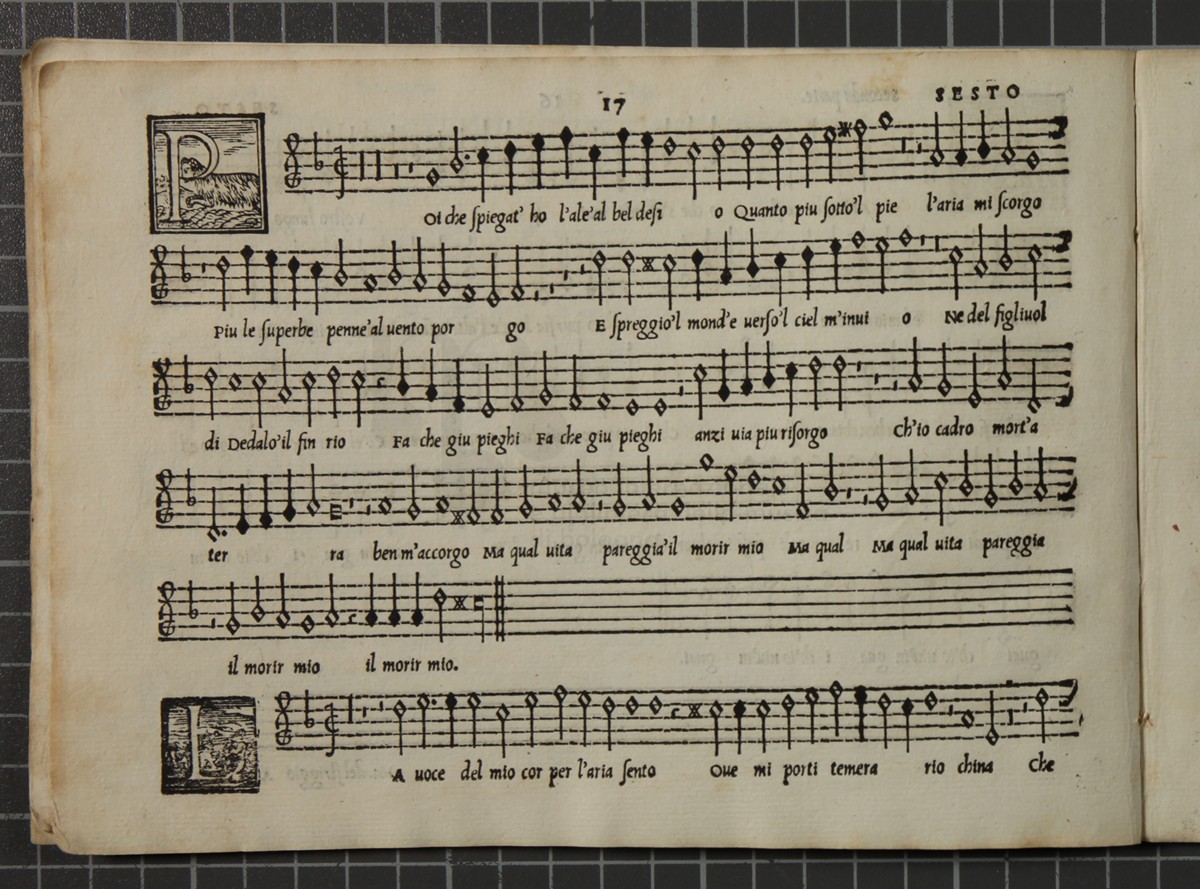 17 SESTO
POi che ſpiegat' ho l'ale'al bel deſi o Quanto piu ſotto'l pie l'aria mi ſcorgo
Piu le ſuperbe penne'al uento por go E ſpreggio'l mond'e uerſo'l ciel m'inui o Ne del figliuol
di Dedalo'il fin rio Fa che giu pieghi Fa che giu pieghi anzi uia piu riſorgo Ch'io cadro mort'a
ter ra ben m'accorgo Ma qual uita pareggia'il morir mio Ma qual Ma qual uita pareggia
il morir mio il morir mio.
LA uoce del mio cor per l'aria ſento Oue mi porti temera rio china Che